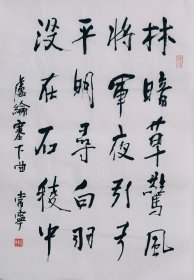 林暗草驚風
將軍夜引弓
平明尋白羽
没在石稜中
盧綸塞下曲 常寧